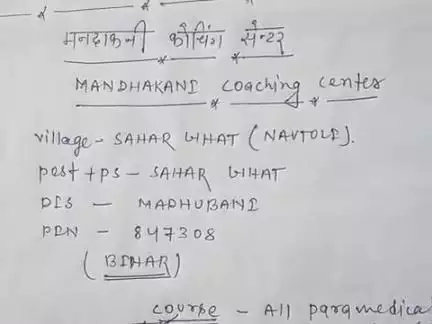 मनदाकनी कोचिंग सेन्टर
MANDHAKANI Coaching center
village - SAHAR GHAT (NAVTOLI).
post + ps - SAHAR GHAT
DIS - MADHUBANI
PIN - 847308
(BIHAR)
course - All paramedical